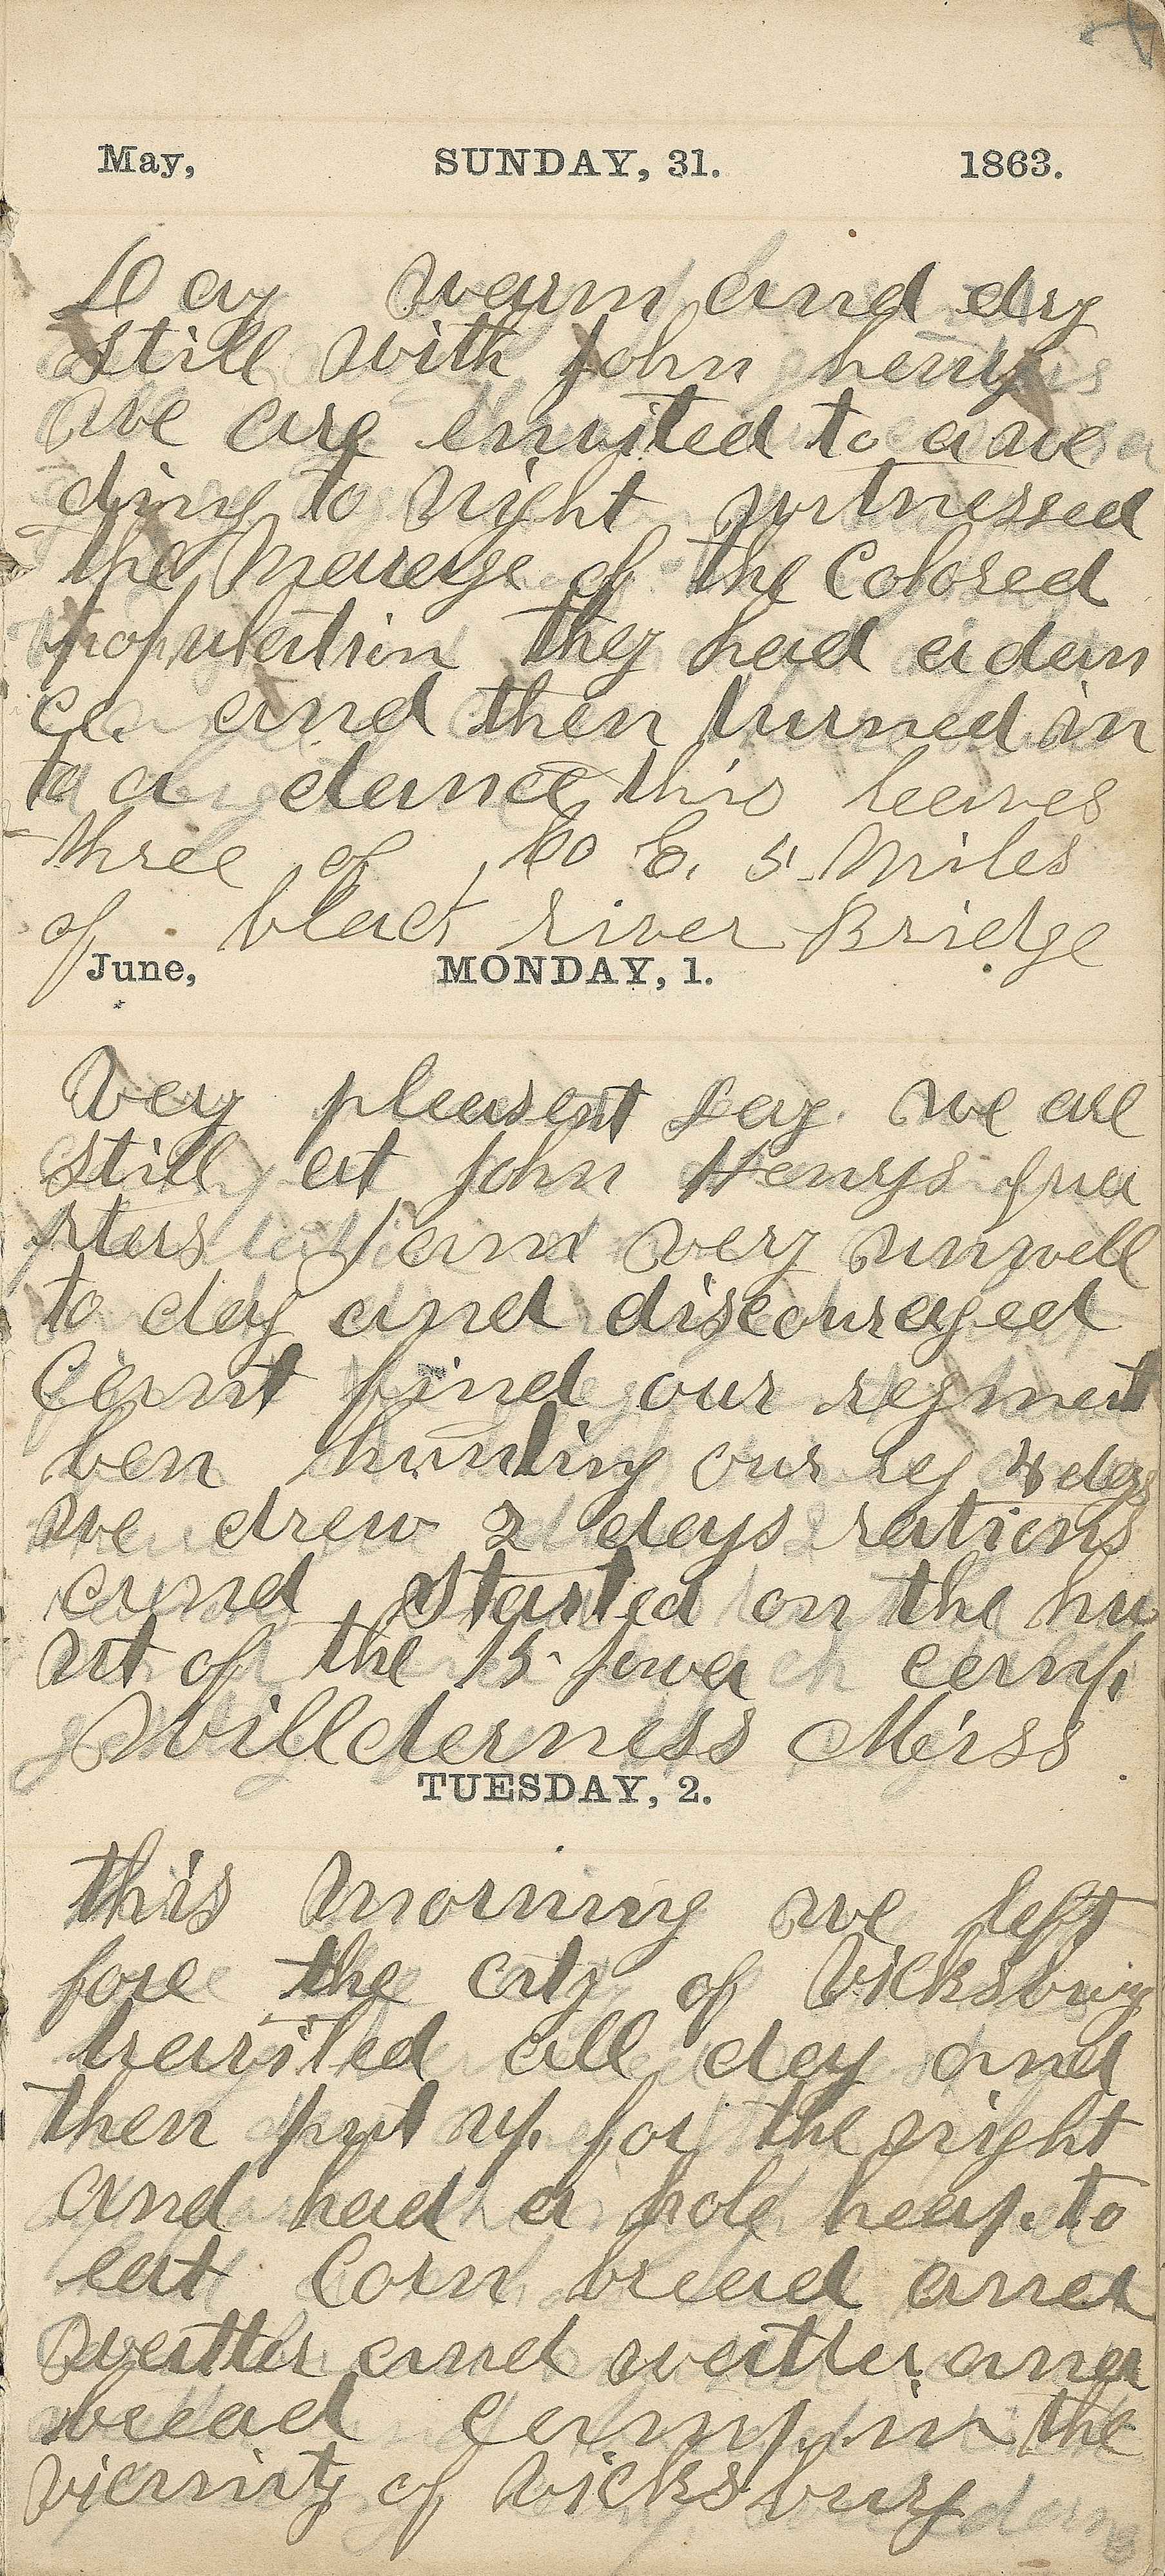 May, SUNDAY, 31. 1863.
Day warm and dry
still with John henrys
we are envited to a we
ding to Night witnessed
the Mareage of the Colored
population they had a dan
ce. and then turned in
to a dance this leaves
three of Co E. 5 Miles
of black river Bridge
June, MONDAY, 1.
Very pleasent Day. we are
still at John Henrys qua
rters I am very unwell
to day and discouraged
Cant find our regment
ben hunting our reg 4 days
we drew 2 days rations
and started on the hu
nt of the 15 Iowa camp
Willderness Miss
TUESDAY, 2.
this Morning we left
fore the city of Vicksburg
traviled all day and
then put up for the night
and had a hole heap to
eat Corn bread and
watter and watter and
bread Camp in the
vicinity of Vicksburg